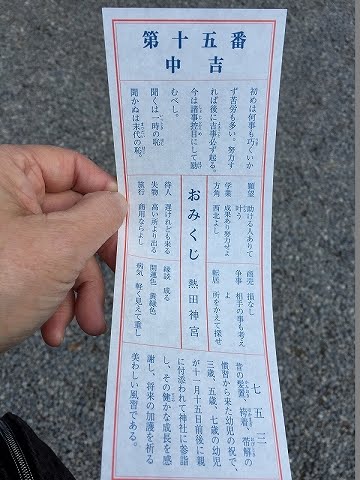 第十五番
中吉
初めは何事も巧くいか
ず苦労も多い。努力す
れば後に吉事必ず起る。
今は諸事控目にして励
むべし。
聞くは一時の恥
聞かぬは末代の恥。
願望 助ける人ありて
叶う
学業 成果あり努力せよ
方角 西北よし
商売 損なし
争事 相手の事も考え
よ
転居 所をかえて探せ
おみくじ 熱田神宮
待人 遅けれども来る
失物 高い所より出る
旅行 商用ならよし
縁談 成る
開運色 黄緑色
病気 軽く見えて重し
七五三
昔の髪置、袴着、帯解の
慣習から来た幼児の祝で、
三歳、五歳、七歳の幼児
が十一月十五日前後に親
に付添われて神社に参詣
し、その健かな成長を感
謝し、将来の加護を祈る
美わしい風習である。